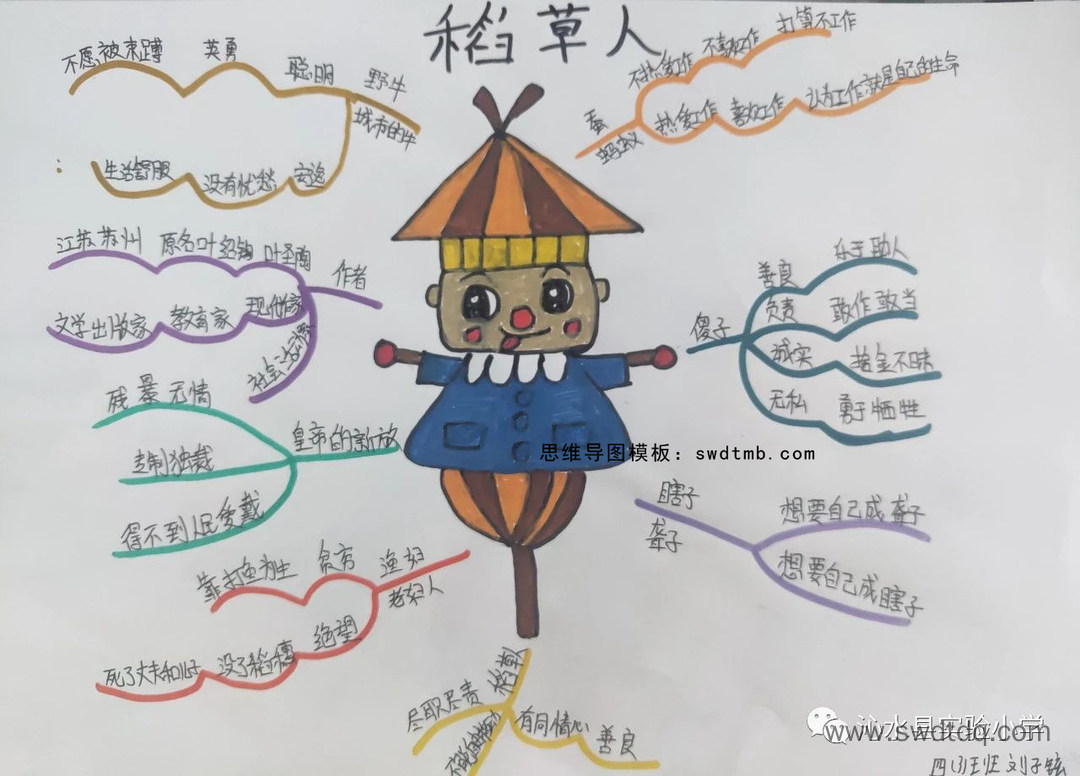 稻草人
不愿被束蹲
英勇
聪明
野牛
城市的牛
生活舒服
没有忧愁
安逸
不热爱工作
不喜欢工作
打算不工作
蚕
蚂蚁
热爱工作
喜欢工作
认为工作就是自己的生命
江苏苏州
原名叶绍钧
叶圣陶
作者
文学出版家
教育家
现代作家
社会活动家
残暴无情
专制独裁
得不到人民爱戴
皇帝的新放
傻子
善良
乐于助人
负责
敢作敢当
诚实
拾金不昧
无私
勇于牺牲
思维导图模板：swdtmb.com
瞎子
聋子
想要自己成聋子
想要自己成瞎子
靠打鱼为生
贫穷
渔妇
老妇人
死了丈夫和儿子
没了稻穗
绝望
稻草人
尽职尽责
有同情心
善良
沁水县实验小学
www.swdtdq.com